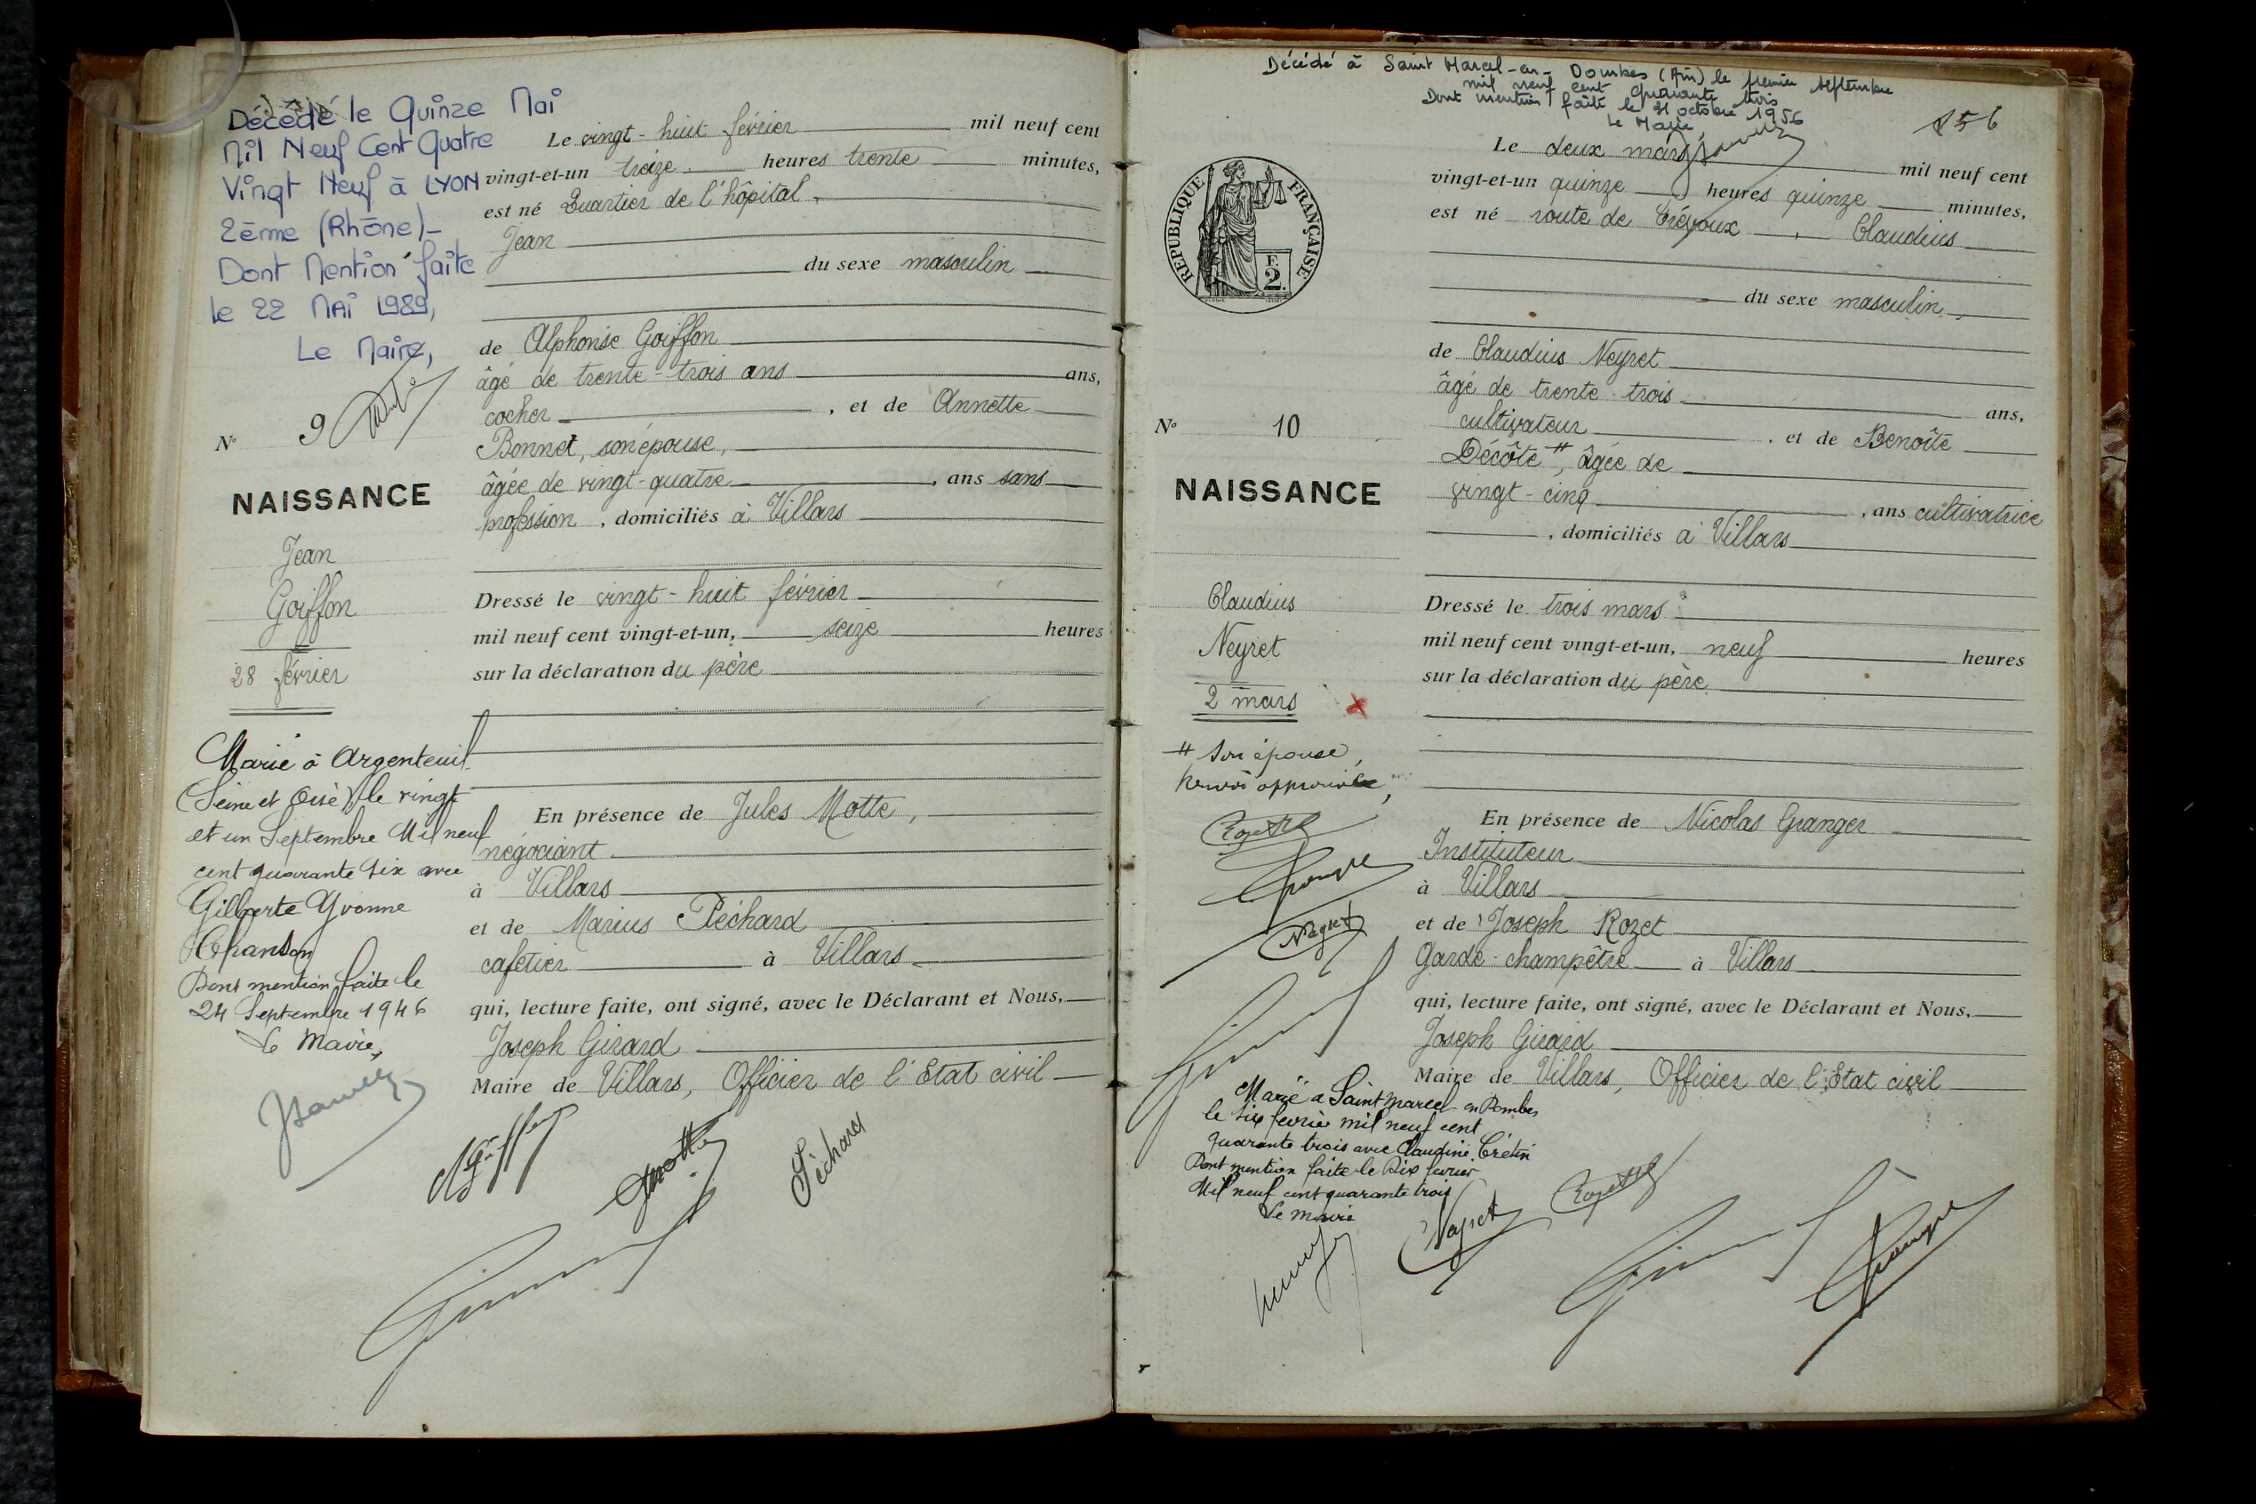 Décédé le Quinze Mai
Mil Neuf Cent Quatre
Vingt Neuf à LYON
2ème (Rhône)_
Dont Mention faite
le 22 MAI 1989,
Le Maire,
N° 9
NAISSANCE
Jean
Goiffon
28 février
Marié à Argenteuil
(Seine et Oise) le vingt
et un Septembre Mil neuf
cent quarante six avec
Gilberte Yvonne
Chanson
Dont mention faite le
24 Septembre 1946
Le Maire,
Le vingt-huit février mil neuf cent
vingt-et-un treize heures trente minutes,
est né Quartier de l'hôpital,
Jean
du sexe masculin
de Alphonse Goiffon
âgé de trente-trois ans ans,
cocher, et de Annette
Bonnet, son épouse,
âgée de vingt-quatre, ans sans
profession, domiciliés à Villars
Dressé le vingt-huit février
mil neuf cent vingt-et-un, seize heures
sur la déclaration du père
En présence de Jules Motte,
négociant
à Villars
et de Marius Péchard
cafetier à Villars
qui, lecture faite, ont signé, avec le Déclarant et Nous,
Joseph Girard
Maire de Villars, Officier de l'Etat civil
Motte
Péchard
Décédé à Saint Marcel-en-Dombes (Ain) le premier septembre
mil neuf cent quarante trois
Dont mention faite le 31 octobre 1956
Le Maire
156
RÉPUBLIQUE FRANÇAISE
F.
2.
N° 10
NAISSANCE
Claudius
Neyret
2 mars
# son épouse,
renvoi approuvé,
Neyret
Le deux mars mil neuf cent
vingt-et-un quinze heures quinze minutes,
est né route de Trévoux, Claudius
du sexe masculin,
de Claudius Neyret
âgé de trente trois ans,
cultivateur, et de Benoîte
Décôte #, âgée de
vingt-cinq, ans cultivatrice
, domiciliés à Villars
Dressé le trois mars
mil neuf cent vingt-et-un, neuf heures
sur la déclaration du père
En présence de Nicolas Granger
Instituteur
à Villars
et de Joseph Rozet
Garde-champêtre à Villars
qui, lecture faite, ont signé, avec le Déclarant et Nous,
Joseph Girard
Maire de Villars, Officier de l'Etat civil
Marié à Saint Marcel en Dombes
le six février mil neuf cent
quarante trois avec Claudine Crétin
Dont mention faite le Dix février
Mil neuf cent quarante trois
Le maire
Neyret